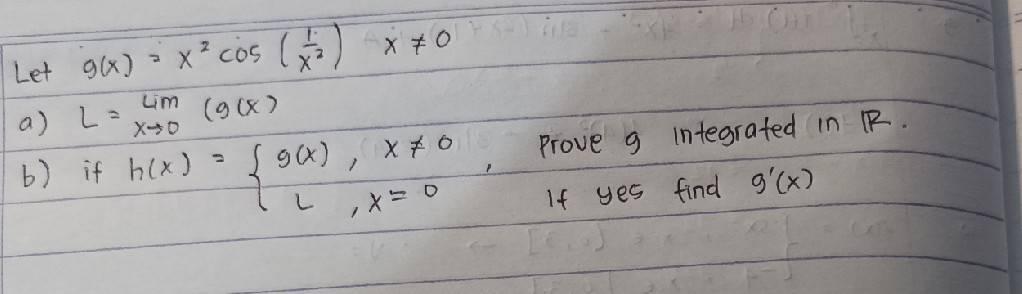 Let g(x) = x² cos (1/x²) x ≠ 0
a) L = Lim x→0 (g(x)
b) if h(x) = { g(x) , x ≠ 0 , Prove g integrated in ℝ.
L , x = 0 If yes find g'(x)